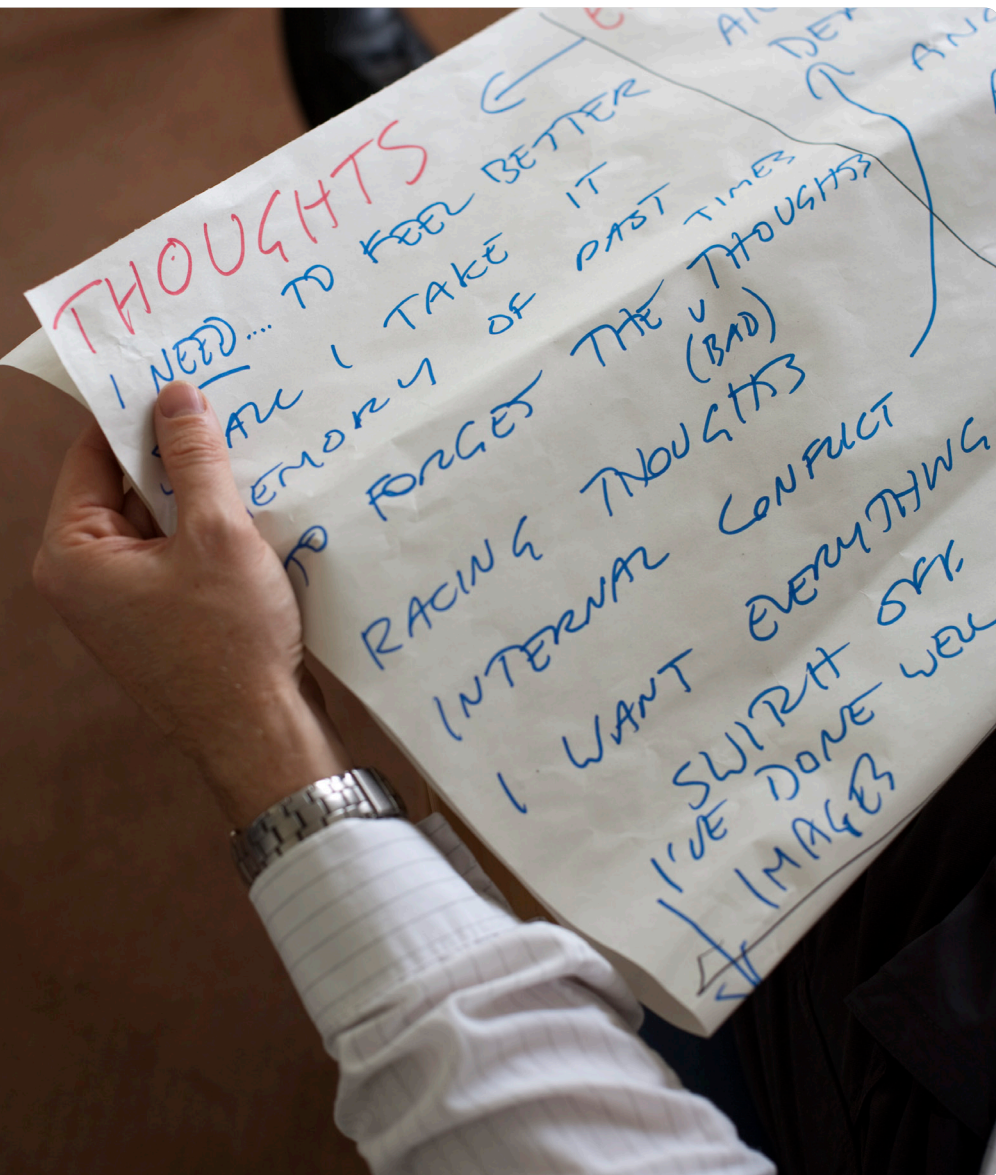 THOUGHTS
I NEED.... TO FEEL BETTER
I TAKE IT
OF PAST TIMES
TO FORGET THE THOUGHTS
(BAD)
RACING THOUGHTS
INTERNAL CONFLICT
I WANT EVERYTHING
SWITCH OFF.
I'VE DONE WELL
IMAGES